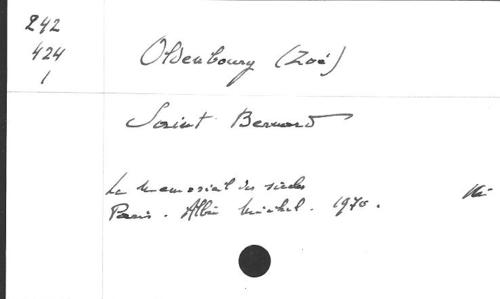 242
424
1
Oldenbourg (Zoé)
Saint Bernard
Le memorial des siècles
Paris. Albin Michel. 1970.